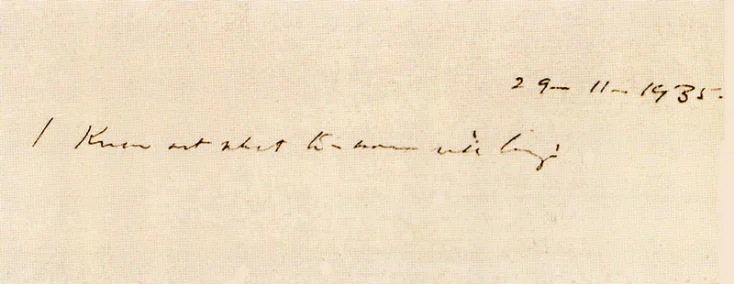 29-11-1935.
I know not what to-morrow will bring.